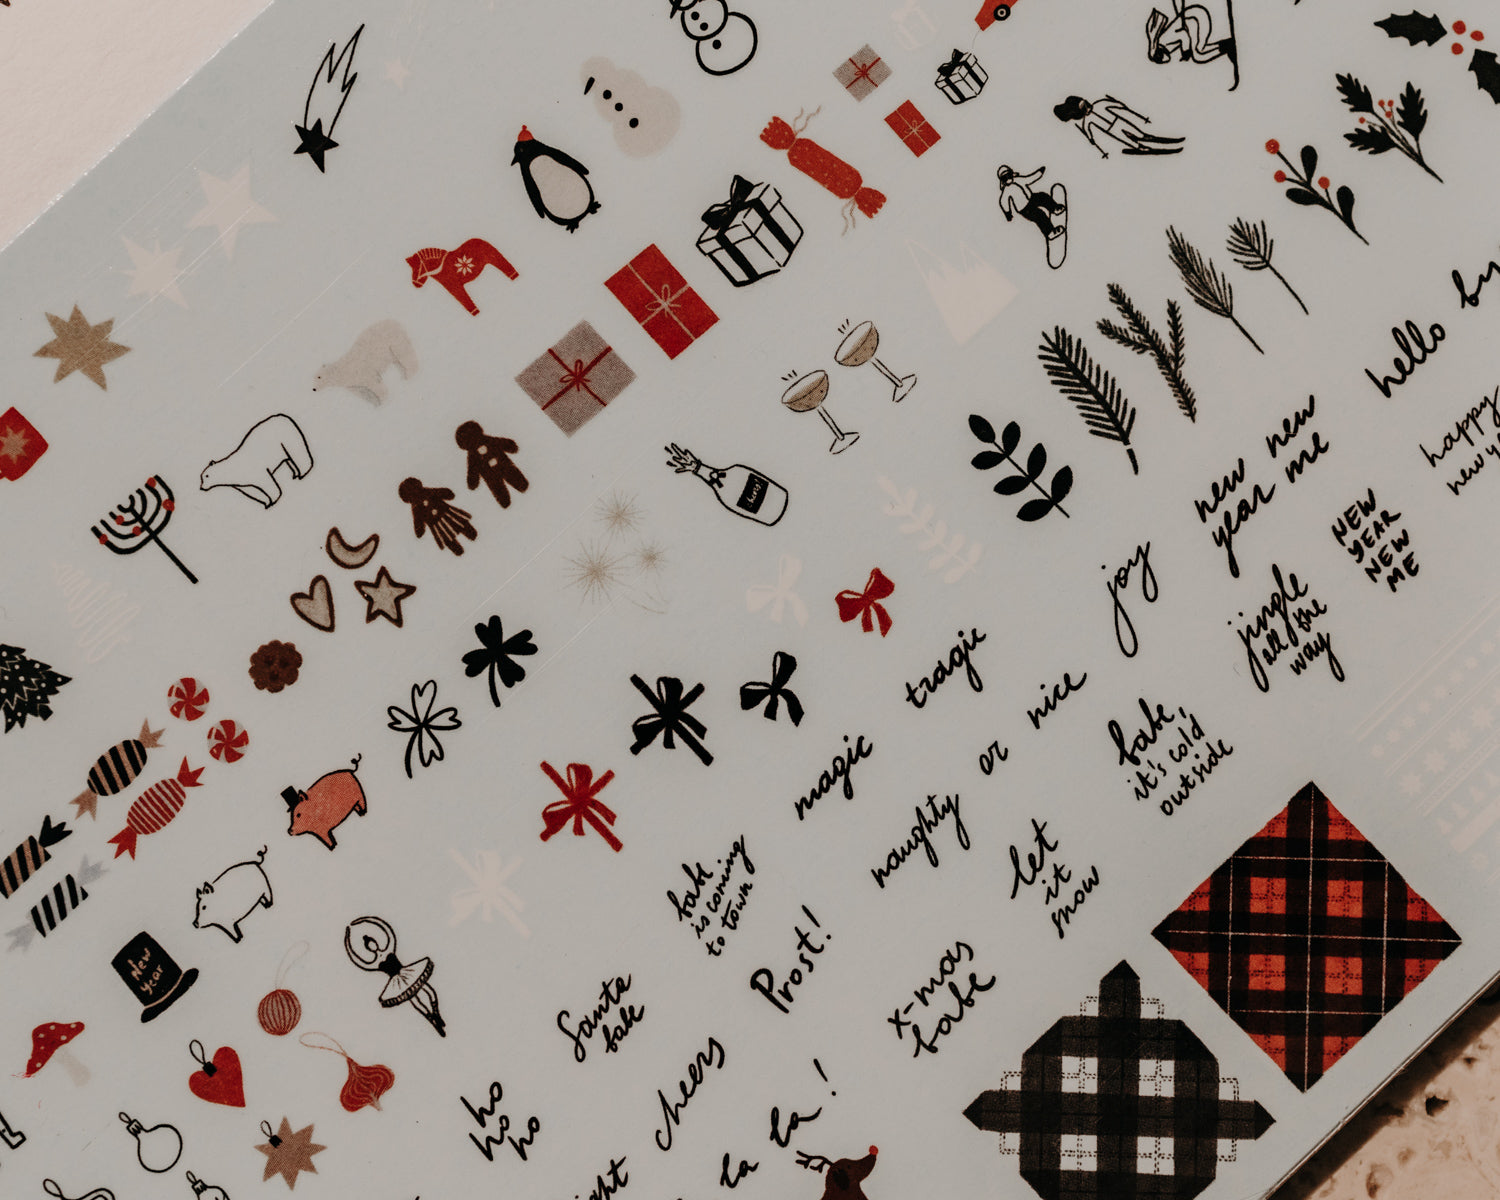 hello
happy
new
new new
year me
NEW
YEAR
NEW
ME
cheers!
joy
jingle
all the
way
tragic
magic
naughty or nice
babe,
it's cold
outside
let
it
snow
babe
is coming
to town
Prost!
x-mas
babe
New
Year
Santa
babe
cheers
ho
ho
ho
la la!